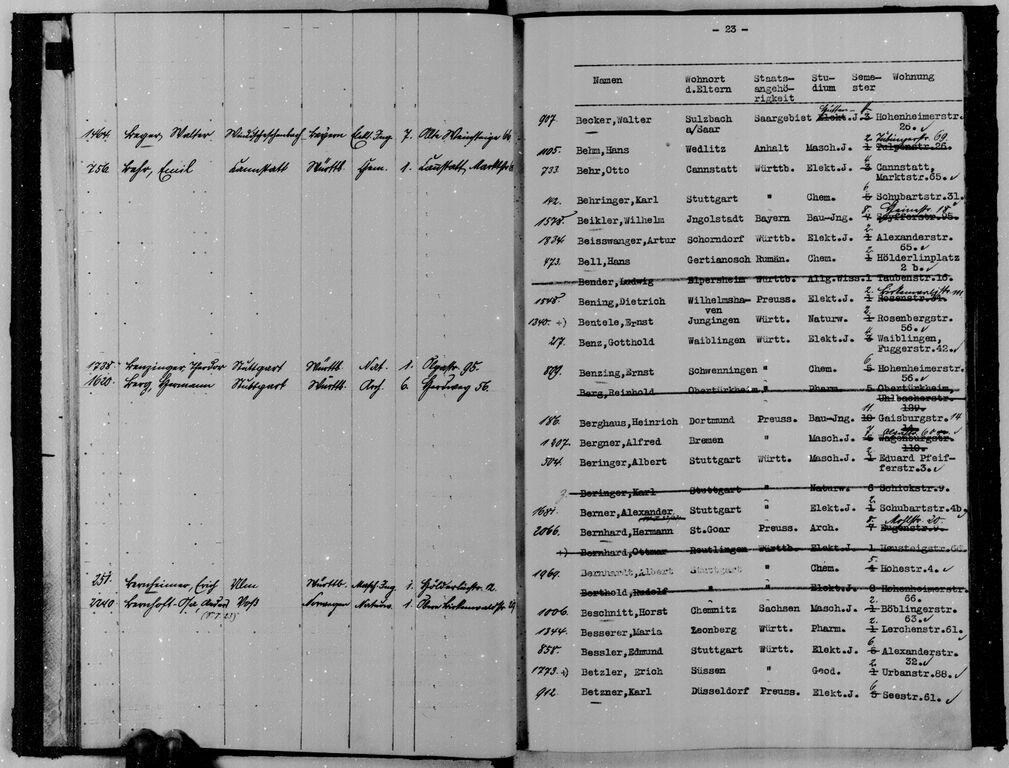 1464. Beyer, Walter Bayern 7. Alte Weinsteige
756. Bahr, Emil Cannstatt Württb. Chem. 1. Cannstatt, Marktstr.
1738. Benzinger Theodor Stuttgart Württb. Nat. 1. Olgastr. 95.
1620. Berg, Hermann Stuttgart Württb. Arch. 6. Herdweg 56.
251. Bernheimer, Erich Ulm Württb. Masch. Ing. 1. Hölderlinstr. 12.
2240. Voß Norwegen Naturw. 1.
- 23 -
Namen Wohnort d.Eltern Staats-angehö-rigkeit Stu-dium Seme-ster Wohnung
907. Becker,Walter Sulzbach Saargebiet Elekt.J. 3 Hohenheimerstr.
a/Saar 26.
1105. Behm,Hans Wedlitz Anhalt Masch.J. 1 Tulpenstr.26.
733. Behr,Otto Cannstatt Württb. Elekt.J. 3 Cannstatt,
Marktstr.65.
142. Behringer,Karl Stuttgart " Chem. 5 Schubartstr.31.
1578. Beikler,Wilhelm Jngolstadt Bayern Bau-Jng. 4
1834. Beisswanger,Artur Schorndorf Württb. Elekt.J. 1 Alexanderstr.
65.
473. Bell,Hans Gertianosch Rumän. Chem. 1 Hölderlinplatz
2 b.
Bender,Ludwig Elpersheim Württb. Allg.Wiss.1 Taubenstr.16.
1548. Bening,Dietrich Wilhelmsha- Preuss. Elekt.J. 1 Rosenstr.34.
ven
1340. +) Bentele,Ernst Jungingen Württ. Naturw. 1 Rosenbergstr.
56.
27. Benz,Gotthold Waiblingen Württ. Elekt.J. 3 Waiblingen,
Fuggerstr.42.
809. Benzing,Ernst Schwenningen " Chem. 5 Hohenheimerstr.
56.
Berg,Reinhold Obertürkheim " Pharm. 5 Obertürkheim,
Uhlbacherstr.
129.
186. Berghaus,Heinrich Dortmund Preuss. Bau-Jng. 10 Gaisburgstr. 14
1207. Bergner,Alfred Bremen " Masch.J. 6 Wagenburgstr.
110.
504. Beringer,Albert Stuttgart Württ. Masch.J. 1 Eduard Pfeif-
ferstr.3.
Beringer,Karl Stuttgart " Naturw. 6 Schickstr.9.
1681. Berner,Alexander Stuttgart " Elekt.J. 1 Schubartstr.4b
2066. Bernhard,Hermann St.Goar Preuss. Arch. 7 Eugenstr.9.
+) Bernhard,Ottmar Reutlingen Württb. Elekt.J. 1 Hausteigstr.66
1969. Bernhardt,Albert Stuttgart " Chem. 4 Hohestr.4.
Berthold,Rudolf " " Elekt.J. 8 Hohenheimerstr.
66.
1006. Beschnitt,Horst Chemnitz Sachsen Masch.J. 1 Böblingerstr.
63.
1344. Besserer,Maria Leonberg Württ. Pharm. 1 Lerchenstr.61.
858. Bessler,Edmund Stuttgart Württ. Elekt.J. 5 Alexanderstr.
32.
1773. +) Betzler, Erich Süssen " Geod. 1 Urbanstr.88.
912. Betzner,Karl Düsseldorf Preuss. Elekt.J. 5 Seestr.61.